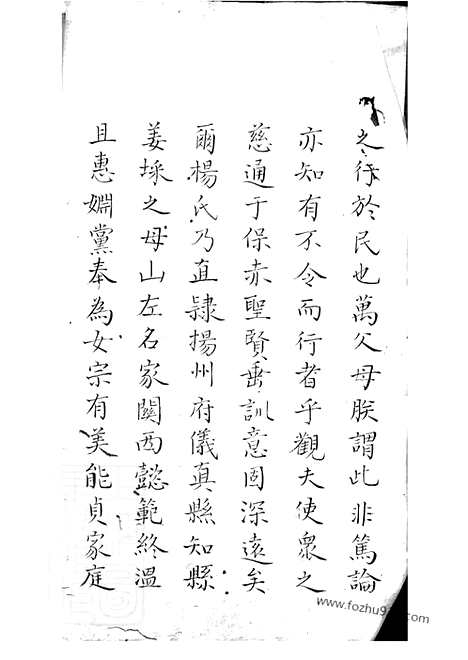 之行於民也萬父母朕謂此非篤論
亦知有不令而行者乎觀夫使眾之
慈通于保赤聖賢垂訓意固深遠矣
爾楊氏乃直隷揚州府儀真縣知縣
姜埰之母山左名家關西懿範終溫
且惠婣黨奉為女宗有美能貞家庭
www.fozhu9